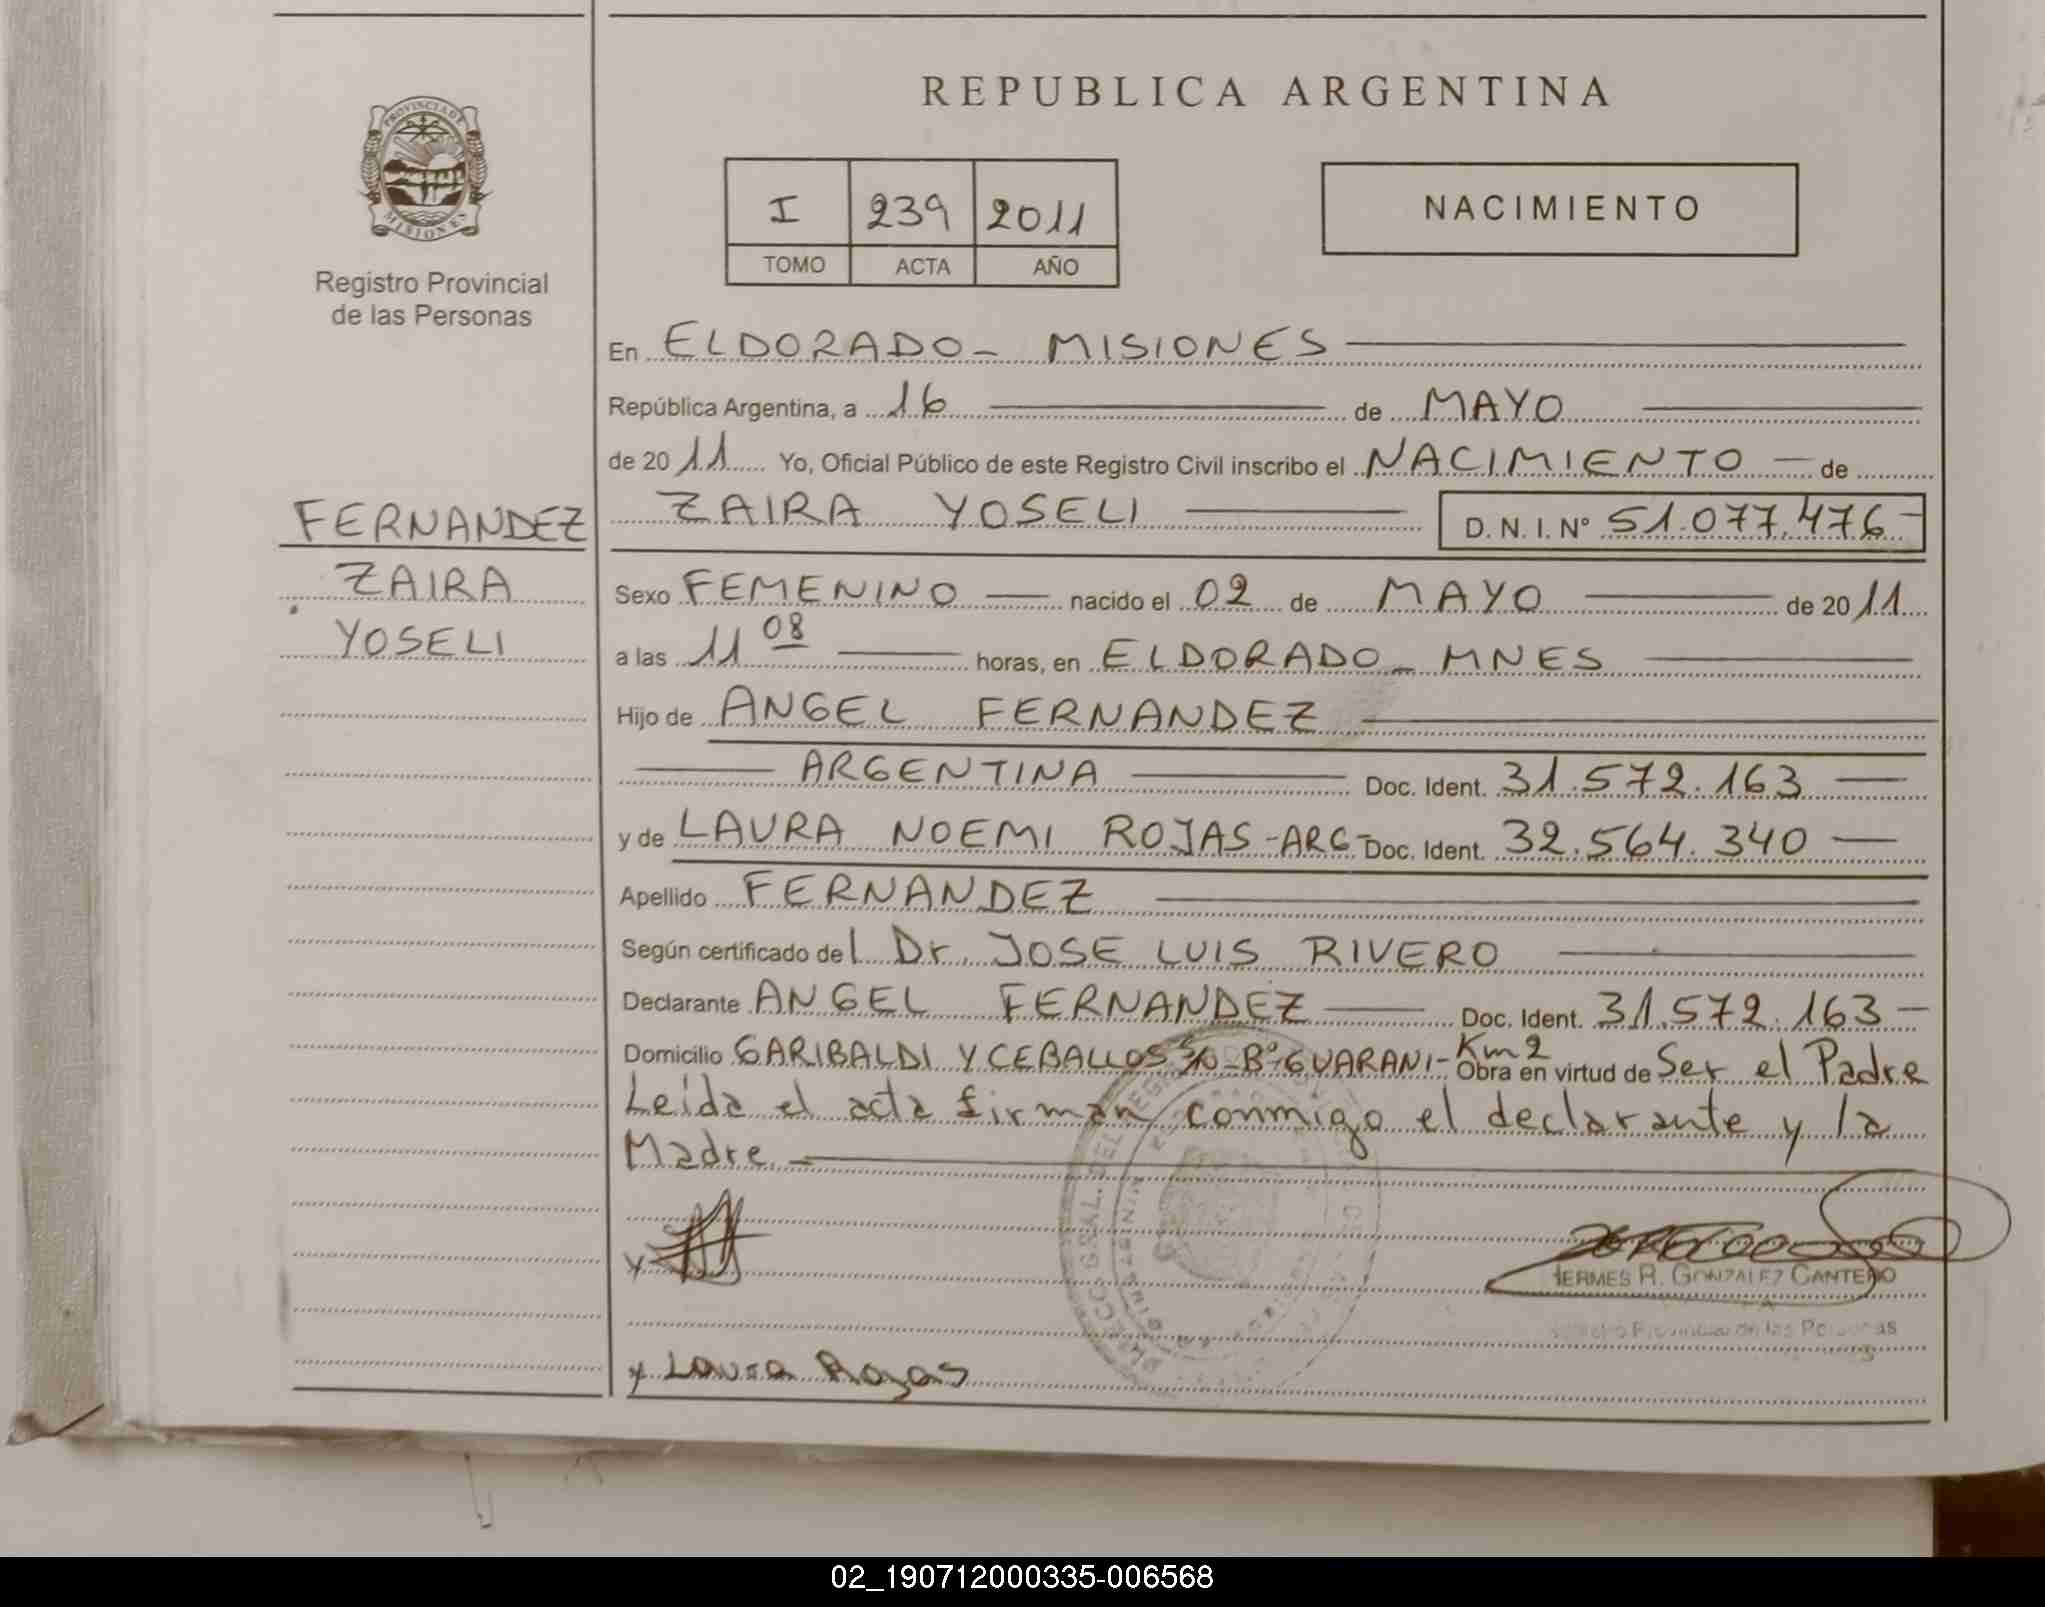 REPUBLICA ARGENTINA
PROVINCIA DE
MISIONES
Registro Provincial
de las Personas
I 239 2011
TOMO ACTA AÑO
NACIMIENTO
FERNANDEZ
ZAIRA
YOSELI
En ELDORADO - MISIONES
República Argentina, a 16 de MAYO
de 2011 Yo, Oficial Público de este Registro Civil inscribo el NACIMIENTO de
ZAIRA YOSELI D. N. I. Nº 51.077.476
Sexo FEMENINO nacido el 02 de MAYO de 2011
a las 11 08 horas, en ELDORADO - MNES
Hijo de ANGEL FERNANDEZ
ARGENTINA Doc. Ident. 31.572.163
y de LAURA NOEMI ROJAS - ARG - Doc. Ident. 32.564.340
Apellido FERNANDEZ
Según certificado del Dr. JOSE LUIS RIVERO
Declarante ANGEL FERNANDEZ Doc. Ident. 31.572.163
Domicilio GARIBALDI Y CEBALLOS S/N - Bº GUARANI - Km 2 Obra en virtud de Ser el Padre
Leida el acta firman conmigo el declarante y la
Madre
HERMES R. GONZALEZ CANTERO
Registro Provincial de las Personas
Laura Rojas
02_190712000335-006568